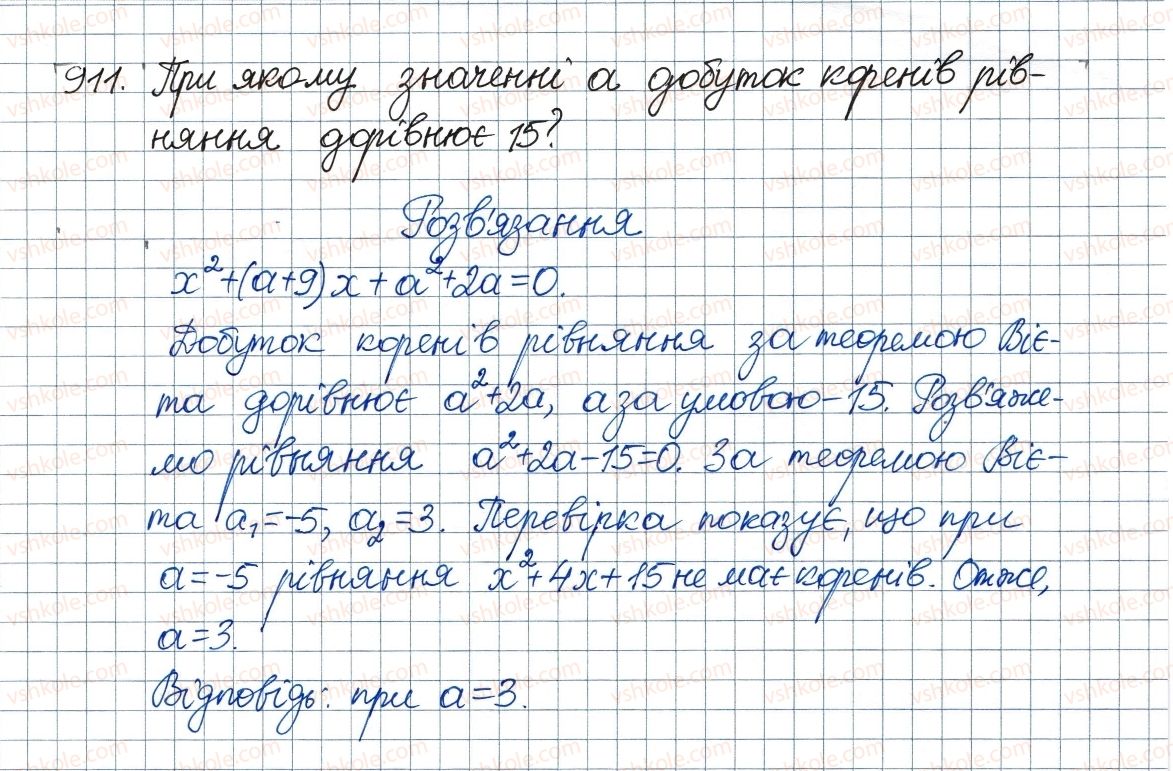 911. При якому значенні а добуток коренів рів-
няння дорівнює 15?
Розв'язання
x²+(a+9)x+a²+2a=0.
Добуток коренів рівняння за теоремою Віє-
та дорівнює a²+2a, а за умовою – 15. Розв'яже-
мо рівняння a²+2a-15=0. За теоремою Віє-
та a₁=-5, a₂=3. Перевірка показує, що при
a=-5 рівняння x²+4x+15 не має коренів. Отже,
a=3.
Відповідь: при a=3.